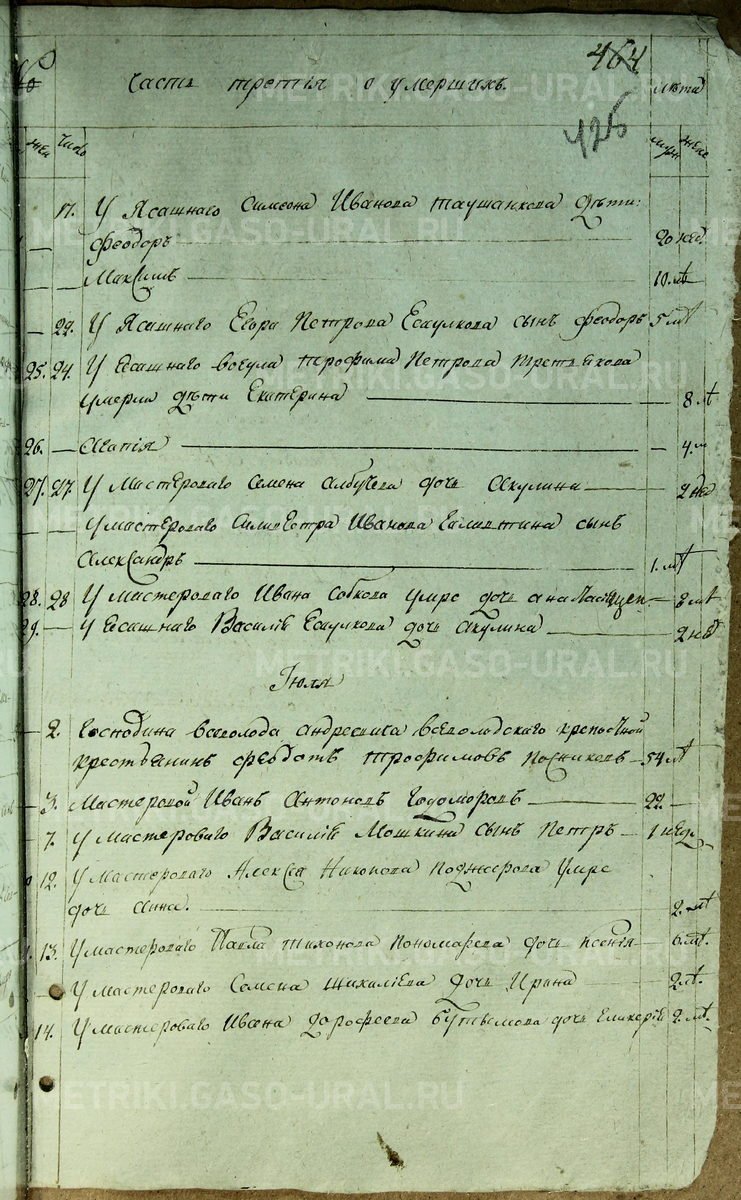 464
426
Часть третiя о умершихъ.
лѣта
Число
муж
женс
17. У Ясашнаго Симеона Иванова Таушанкова дѣти:
Феодоръ — 20 нед.
Максимъ — 10. лѣ
— 22. У Ясашнаго Егора Петрова Есаулкова сынъ Феодоръ 5 лѣт
25. 24. У Ясашнаго вогула Трофима Петрова Третьякова
умерли дѣти Екатерина — 8 лѣт
26. — Агапiя — 4. м
27. 27. У Мастероваго Семена дочь Акулина — 2 нед
— — У мастероваго Силивестра Иванова сынъ
Александръ — 1. лѣт
28. 28 У мастероваго Ивана Собкова умре дочь — 3 лѣт
29. — У Ясашнаго Василiя Есаулкова дочь Акулина — 2 нед
Iюля
— 2. Господина всеволода андреевича всеволодскаго крепосной
крестьянинъ Феодотъ Трофимовъ Посниковъ — 54 лѣт
— 3. Мастеровой Иванъ Антоновъ — 22. —
7. У мастероваго Василiя Мошкина сынъ Петръ — 1 нед.
12. У мастероваго Алексѣя Никонова умре
дочь Анна. — 2. лѣт
13. У мастероваго Павла Тихонова Пономарева дочь Ксенiя — 6 лѣт.
— У мастероваго Семена Шихалiева дочь Ирина — 2 лѣт.
14. У мастероваго Ивана Дорофеева дочь Гликерiя 2. лѣт.
METRIKI.GASO-URAL.RU